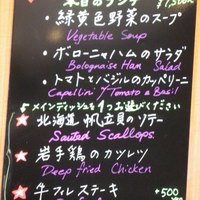 本日のランチ ¥1,500
・緑黄色野菜のスープ
Vegetable Soup
・ボローニャハムのサラダ
Bolognaise Ham Salad
・トマトとバジルのカッペリーニ
Capellini Y Tomato & Basil
5 メインディッシュを1つお選びください
北海道 帆立貝のソテー
Sauted Scallops.
岩手鶏のカツレツ
Deep fried Chicken
牛フィレステーキ +500